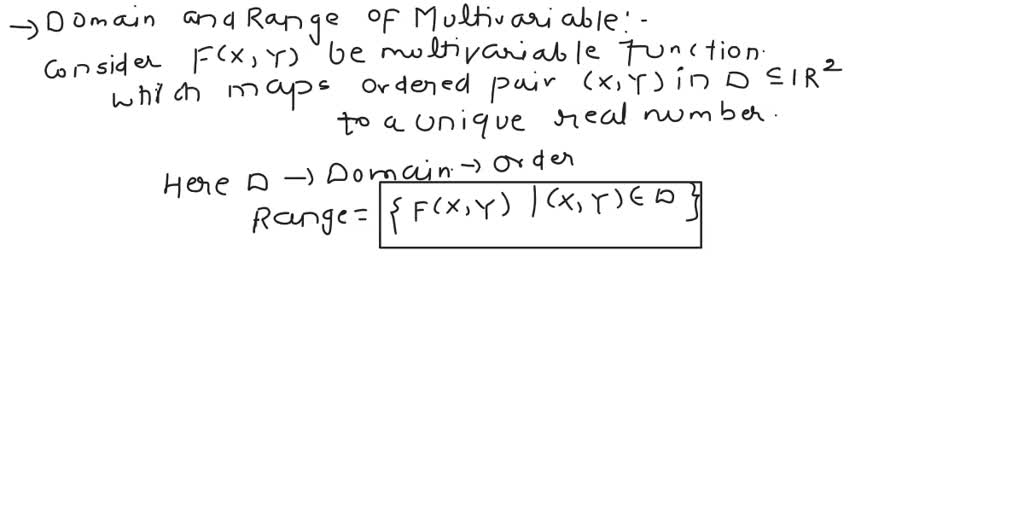 → Domain and Range of Multivariable:-
Consider F(X, Y) be multivariable function.
which maps ordered pair (X, Y) in D ⊆ IR²
to a unique real number.
Here D → Domain → order
Range = { F(X, Y) | (X, Y) ∈ D }